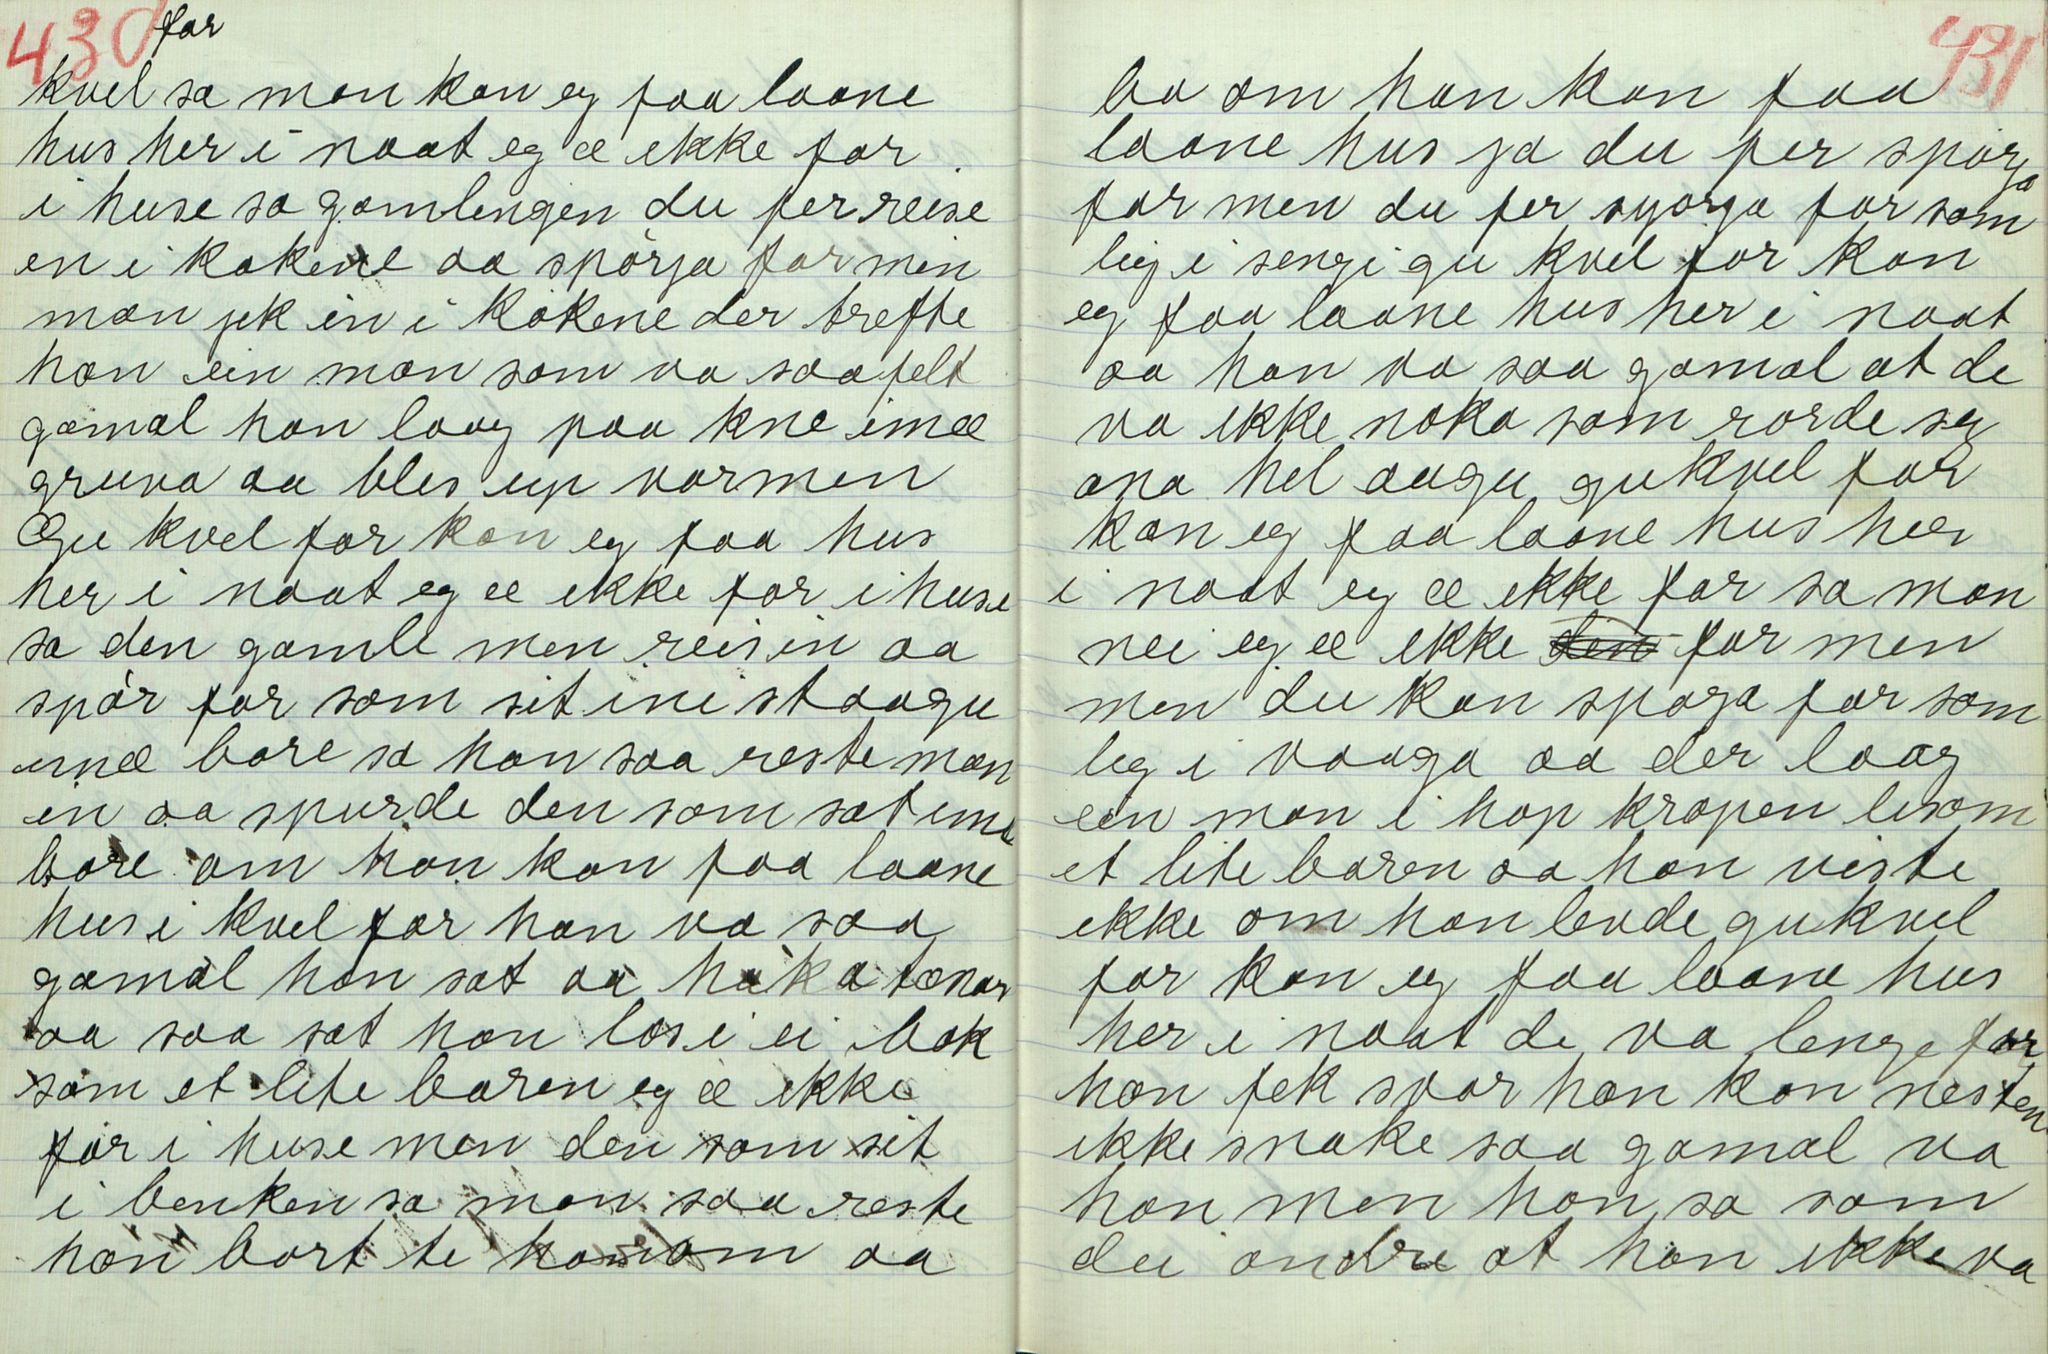 430 far
kvel sa man kan eg faa laane
hus her i naat eg æ ikke far
i huse sa gamlengen du fer reise
en i køkene aa spørja far min
man jek in i køkene der trefte
han ein man som va saa felt
gamal han laag paa kne imæ
gruva aa bles up varmen
Gu kvel far kan eg faa hus
her i naat eg æ ikke far i huse
sa den gamle men reis in aa
spør far som sit ini staagu
imæ bore sa han saa reste man
in aa spurde den som sat imæ
bore om han kan faa laane
hus i kvel far han va saa
gamal han sat aa haka tænar
aa saa sat han las i ei bok
som et lite baren eg æ ikke
far i huse men den som sit
i benken sa man saa reste
han bort te hanom aa
431
ba om han kan faa
laane hus ja du fer spørja
far men du fer spørja far som
lig i sengi gu kvel far kan
eg faa laane hus her i naat
aa han va saa gamal at de
va ikke noka som rørde seg
ana hel augu gu kvel far
kan eg faa laane hus her
i naat eg æ ikke far sa man
nei eg æ ikke far men
men du kan spørja far som
lig i vaaga aa der laag
ein man i hop kropen lisom
et lite baren aa han viste
ikke om han levde gu kvel
far kan eg faa laane hus
her i naat de va lenge før
han fek svar han kan nesten
ikke snake saa gamal va
han men han sa som
dei andre at han ikke va